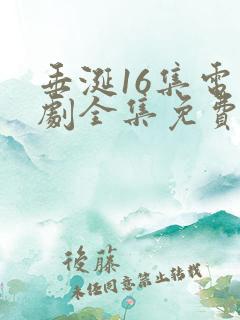 垂涎16集電
劇全集免費
後藤
未經同意禁止轉載